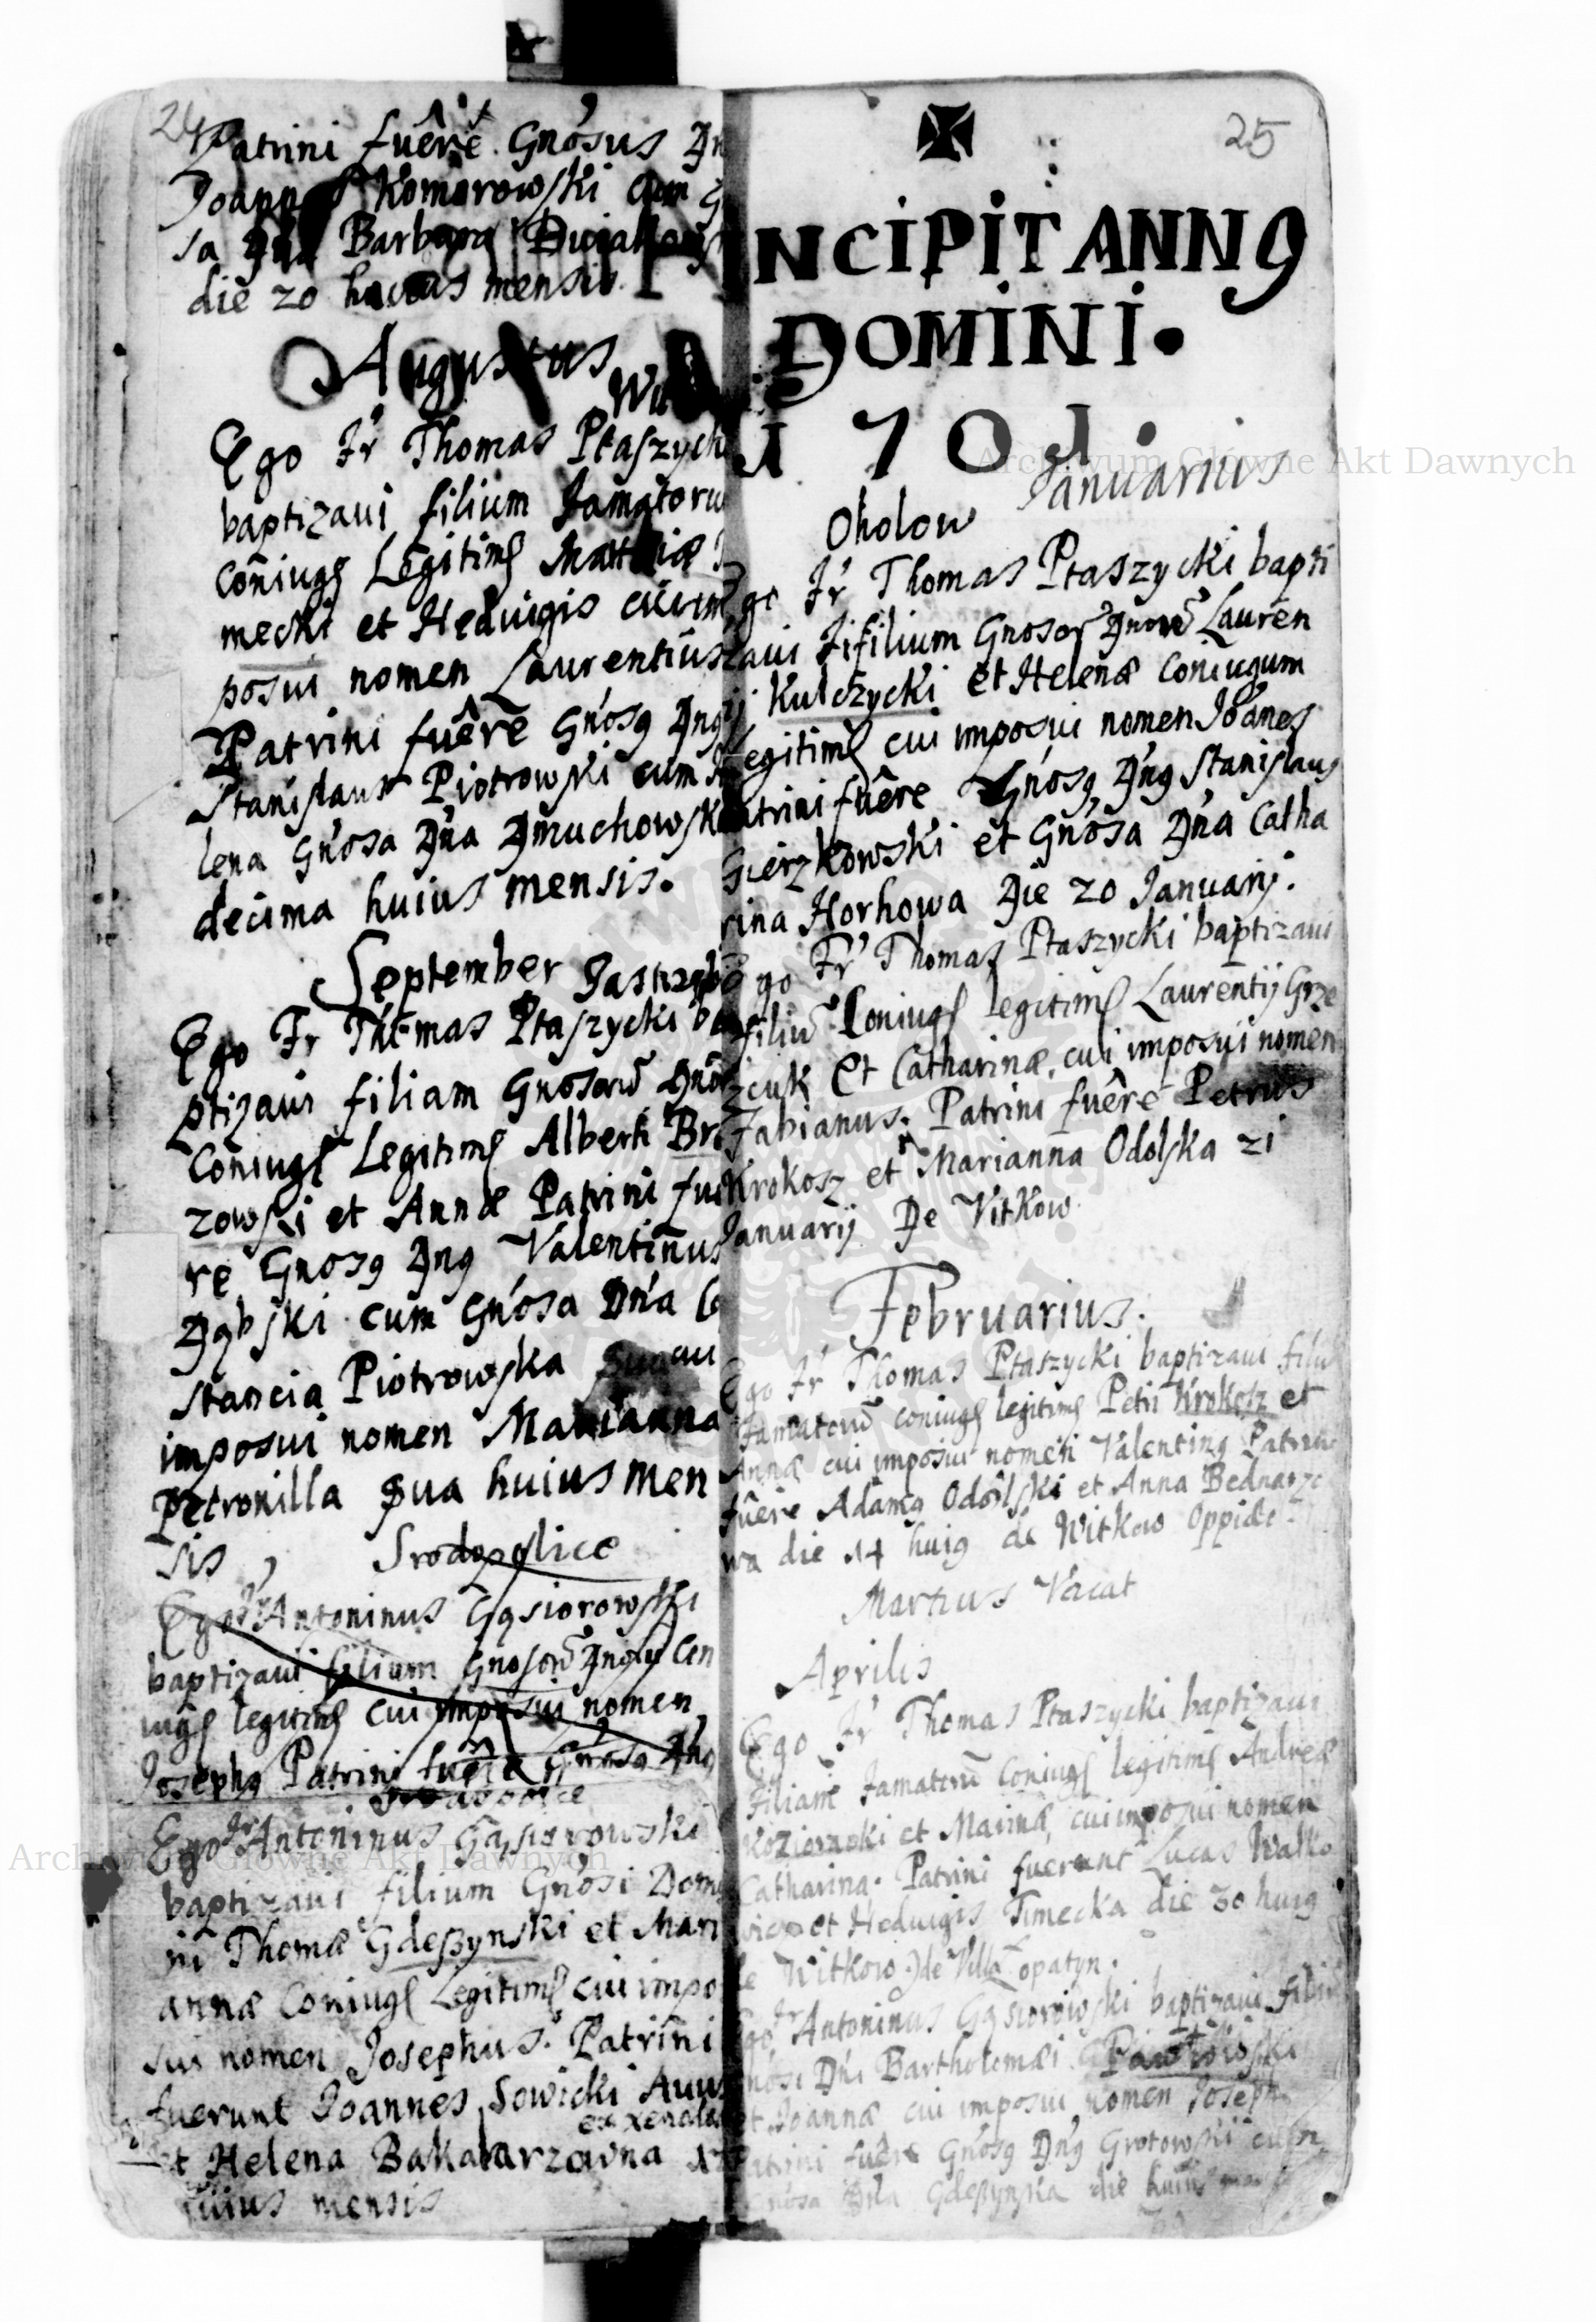 24
Patrini fuêre Gnósus Dn
Joannes Komorowski cum G
sa Dna Barbara
die 20 huius mensis.
Augustus
Wit
Ego Fr Thomas Ptaszyck
baptizavi filium Famatorū
coniugū Legitimū Matthiæ
mecki et Hedvigis cui im
posui nomen Laurentius
Patrini fuêre Gnósq Dnq
Stanislaus Piotrowski cum He
lena Gnósa Dna Dmuchowsk
decima huius mensis.
September Jastrzęb
Ego Fr Thomas Ptaszycki ba
ptizavi filiam Gnosorū Dnō
Coniugū Legitimū Alberti Br
zowski et Annæ Patrini fue
re Gnosq Dnq Valentinus
Dąbski cum Gnósa Dńa Co
stancia Piotrowska cui
imposui nomen Marianna
Petronilla qua huius men
sis, Srodopolice
Ego Fr Antoninus Gąsiorowski
baptizavi filium Gnosorū Dnorū Con
iugū legitimū cui imposui nomen
Josephq Patrini fuêre Gnósq Dnq
Ego Fr Antoninus Gąsiorowski
baptizavi filium Gnósi Domi
ni Thomæ Gdeszynski et Mari
annæ Coniugū Legitimū cui impo
sui nomen Josephus. Patrini
fuerunt Joannes Sowicki Avus
et Helena Bakalarzowna
huius mensis
25
INCIPIT ANNq
DOMINI.
1701.
Januarius
Oholow
Ego Fr Thomas Ptaszycki bapti
zavi filium Gnosorū Dnorū Lauren
tij Kulczycki et Helenæ Coniugum
Legitimū cui imposui nomen Joanes
Patrini fuêre Gnósq Dńq Stanislaus
Gierzkowski et Gnósa Dńa Catha
rina Horhowa Die 20 Januarij.
Ego Fr Thomas Ptaszycki baptizavi
filiū Coniugū legitimū Laurentij Grze
szcuk Et Catharinæ, cui imposui nomen
Fabianus. Patrini fuêre Petrus
Krokosz et Marianna Odolska 21
Januarij De Vitkow
Februarius.
Ego Fr Thomas Ptaszycki baptizavi filiū
Famatorū coniugū legitimū Petri Krokosz et
Annæ cui imposui nomen Valentinq Patrini
fuêre Adamq Odolski et Anna Bednarzo
wa die 14 huiq de Witkow Oppido.
Martius Vacat
Aprilis
Ego Fr Thomas Ptaszycki baptizavi
Filiam Famatorū Coniugū legitimū Andreæ
et Marinæ, cui imposui nomen
Catharina. Patrini fuerunt Lucas Walko
wicz et Hedvigis Timecka die 30 huiq
de Witkow de Villa Lopatyn.
Ego Fr Antoninus Gąsiorowski baptizavi filiū
Gnósi Dńi Bartholomæi Pawłowski
et Joannæ cui imposui nomen Joseph
Patrini fuêre Gnósq Dńq Grotowski cum
Gnósa Dńa Gdeszynska die huius
Archiwum Główne Akt Dawnych
Archiwum Główne Akt Dawnych